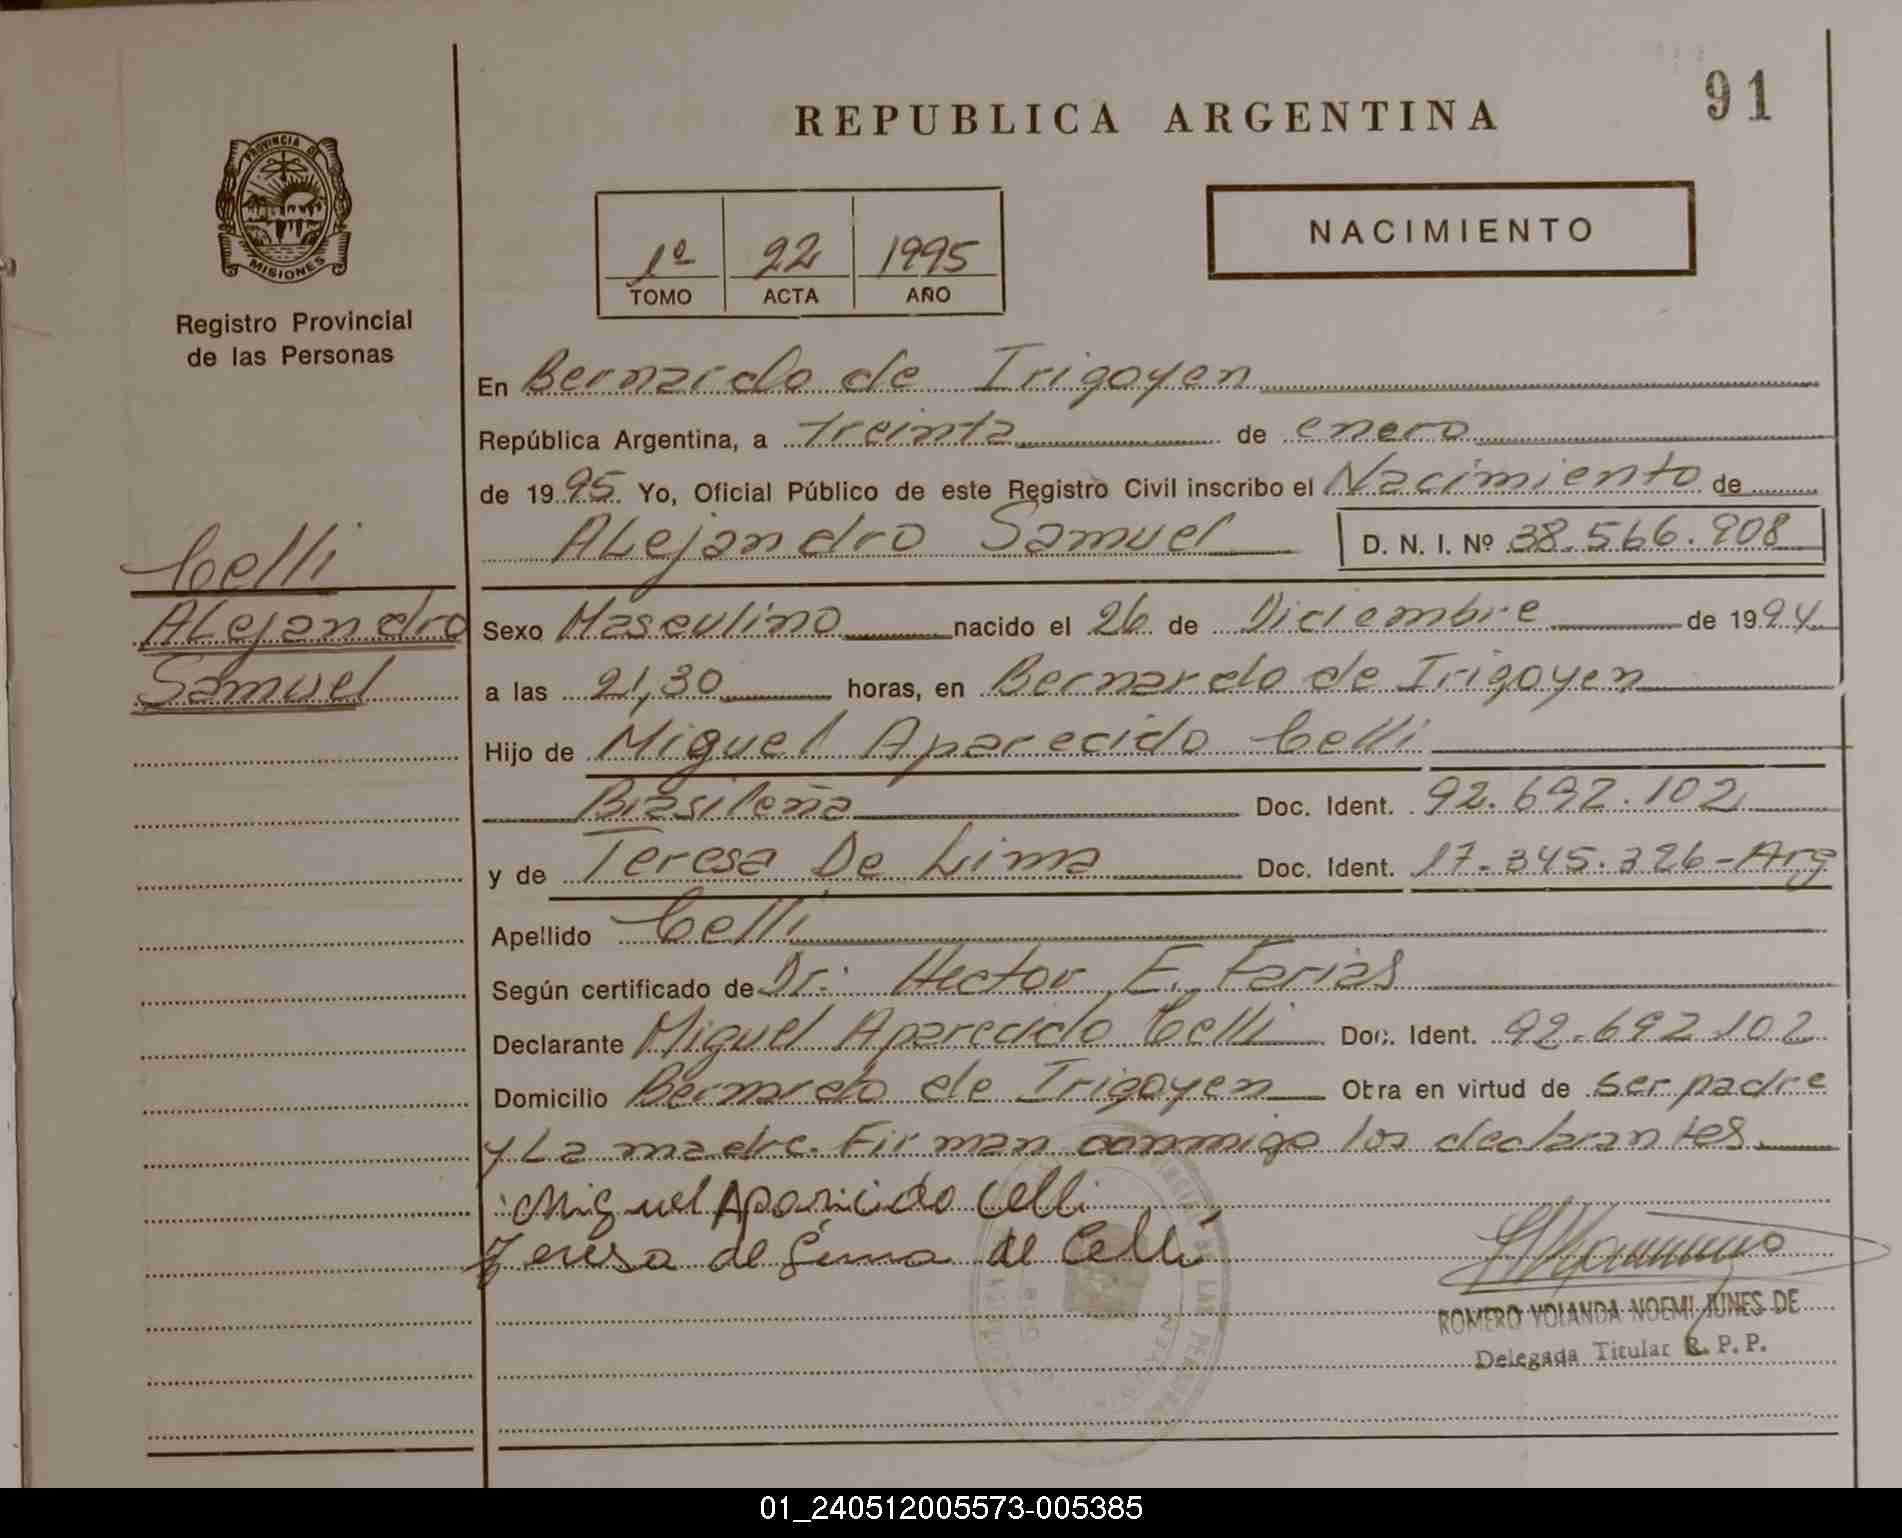 91
REPUBLICA ARGENTINA
PROVINCIA DE
MISIONES
Registro Provincial
de las Personas
1º 22 1995
TOMO ACTA AÑO
NACIMIENTO
En Bernardo de Irigoyen
República Argentina, a treinta de enero
de 1995 Yo, Oficial Público de este Registro Civil inscribo el Nacimiento de
ALejandro Samuel D. N. I. Nº 38.566.908
Celli
ALejandro
Samuel
Sexo Masculino nacido el 26 de Diciembre de 1994
a las 21,30 horas, en Bernardo de Irigoyen
Hijo de Miguel Aparecido Celli
Brasileña Doc. Ident. 92.692.102
y de Teresa De Lima Doc. Ident. 17.345.326-Arg
Apellido Celli
Según certificado de Dr: Hector E. Farias
Declarante Miguel Aparecido Celli Doc. Ident. 92.692.102
Domicilio Bernardo de Irigoyen Otra en virtud de ser padre
y La madre. Firman conmigo los declarantes
Miguel Aparicido Celli
Teresa de Lima de Celli
ROMERO YOLANDA NOEMI JUNES DE
Delegada Titular R. P. P.
01_240512005573-005385